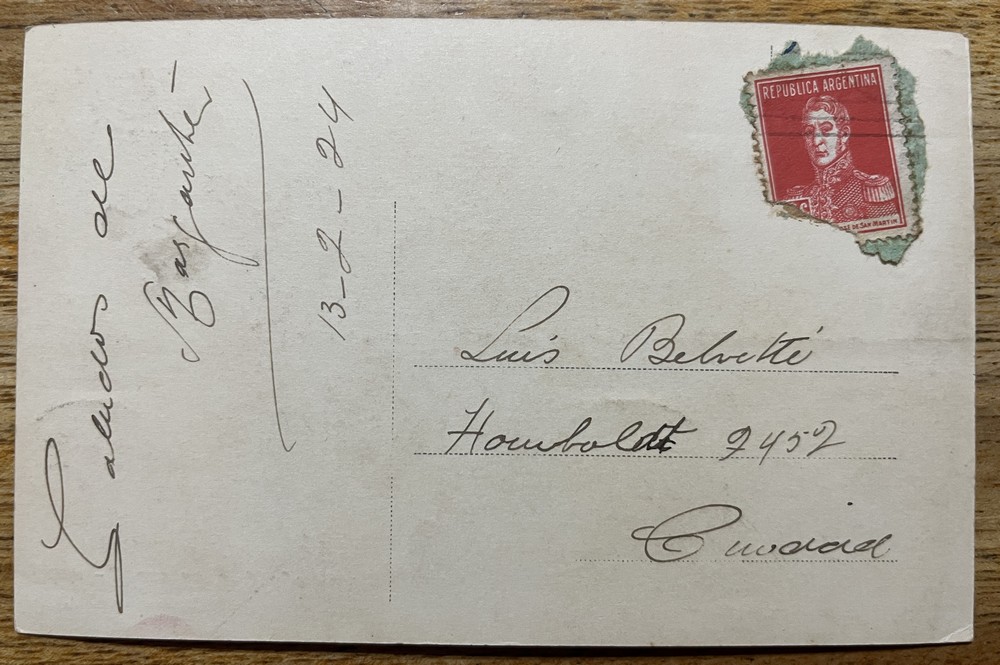 Saludos de
13-2-24
REPUBLICA ARGENTINA
SAN MARTIN
Luis Belvetti
Humboldt 2452
Ciudad